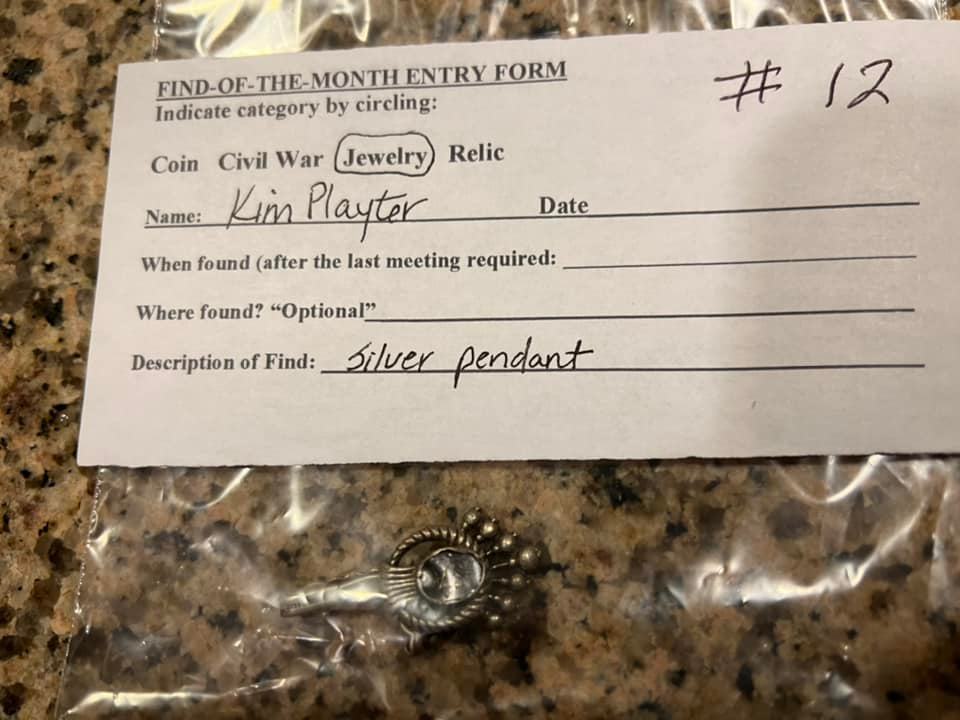 FIND-OF-THE-MONTH ENTRY FORM
# 12
Indicate category by circling:
Coin Civil War Jewelry Relic
Name: Kim Playter Date
When found (after the last meeting required:
Where found? “Optional”
Description of Find: Silver pendant